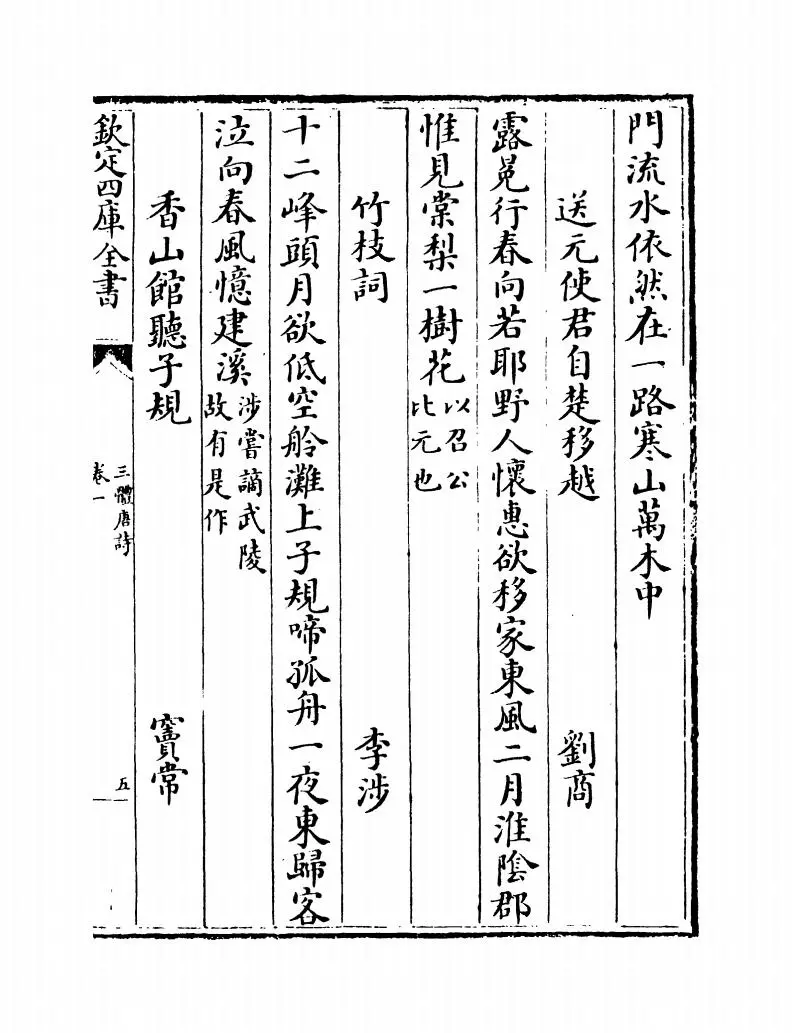 門流水依然在一路寒山萬木中
送元使君自楚移越 劉商
露冕行春向若耶野人懷惠欲移家東風二月淮陰郡
惟見棠梨一樹花以召公
比元也
竹枝詞 李涉
十二峰頭月欲低空舲灘上子規啼孤舟一夜東歸客
泣向春風憶建溪涉嘗謫武陵
故有是作
香山館聽子規 竇常
欽定四庫全書
三體唐詩
卷一
五